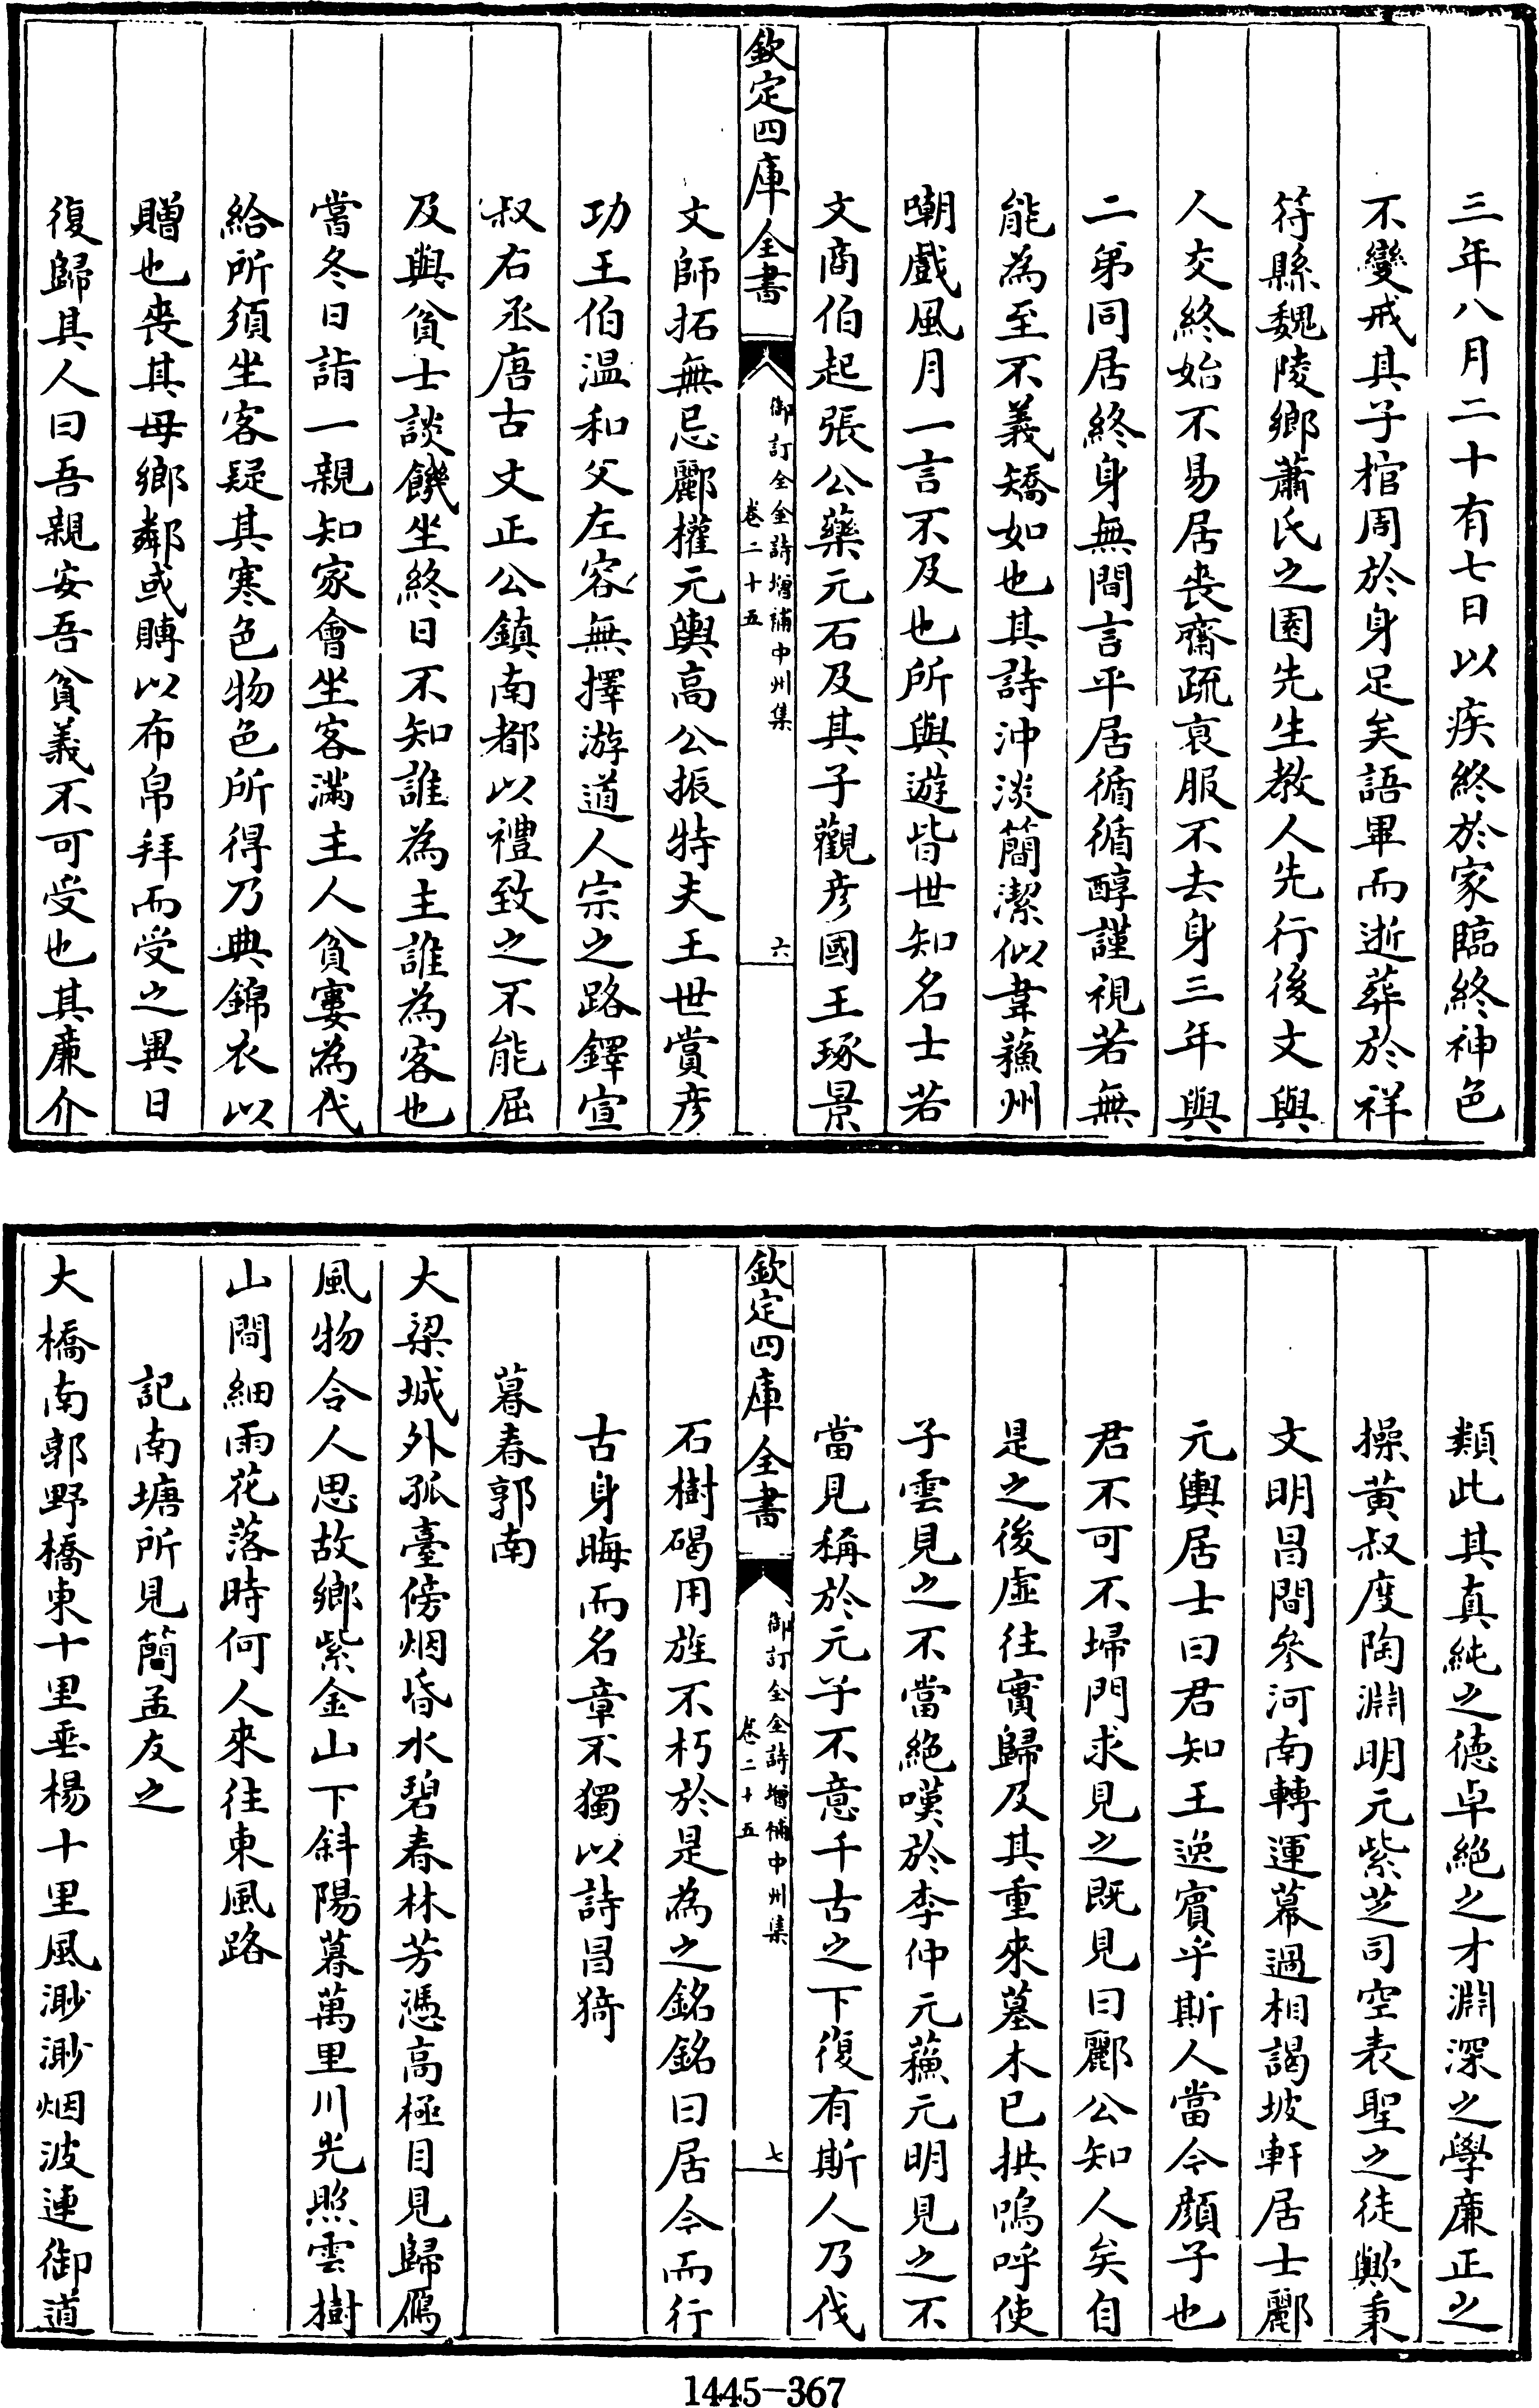 三年八月二十有七日以疾終於家臨終神色
不變戒其子棺周於身足矣語畢而逝葬於祥
符縣魏陵鄉蕭氏之園先生教人先行後文與
人交終始不易居喪齋疏哀服不去身三年與
二弟同居終身無間言平居循循醇謹視若無
能為至不義矯如也其詩沖淡簡潔似韋蘇州
嘲戲風月一言不及也所與遊皆世知名士若
文商伯起張公藥元石及其子觀彦國王琢景
欽定四庫全書
御訂全金詩增補中州集
卷二十五
六
文師拓無忌酈權元輿高公振特夫王世賞彦
功王伯温和父左容無擇游道人宗之路鐸宣
叔右丞唐古文正公鎮南都以禮致之不能屈
及與貧士談饑坐終日不知誰為主誰為客也
當冬日詣一親知家會坐客滿主人貧窶為代
給所須坐客疑其寒色物色所得乃典錦衣以
贈也喪其母鄉鄰或賻以布帛拜而受之異日
復歸其人曰吾親安吾貧義不可受也其廉介
類此其真純之德卓絶之才淵深之學廉正之
操黄叔度陶淵明元紫芝司空表聖之徒歟秉
文明昌間參河南轉運幕過相謁坡軒居士酈
元輿居士曰君知王逸賓乎斯人當今顔子也
君不可不埽門求見之既見曰酈公知人矣自
是之後虚往實歸及其重來墓木已拱嗚呼使
子雲見之不當絶嘆於李仲元蘇元明見之不
當見稱於元子不意千古之下復有斯人乃伐
欽定四庫全書
御訂全金詩增補中州集
卷二十五
七
石樹碣用旌不朽於是為之銘銘曰居今而行
古身晦而名章不獨以詩昌猗
暮春郭南
大梁城外孤臺傍烟昏水碧春林芳憑高極目見歸鴈
風物令人思故鄉紫金山下斜陽暮萬里川光照雲樹
山間細雨花落時何人來往東風路
記南塘所見簡孟友之
大橋南郭野橋東十里垂楊十里風渺渺烟波連御道
1445-367